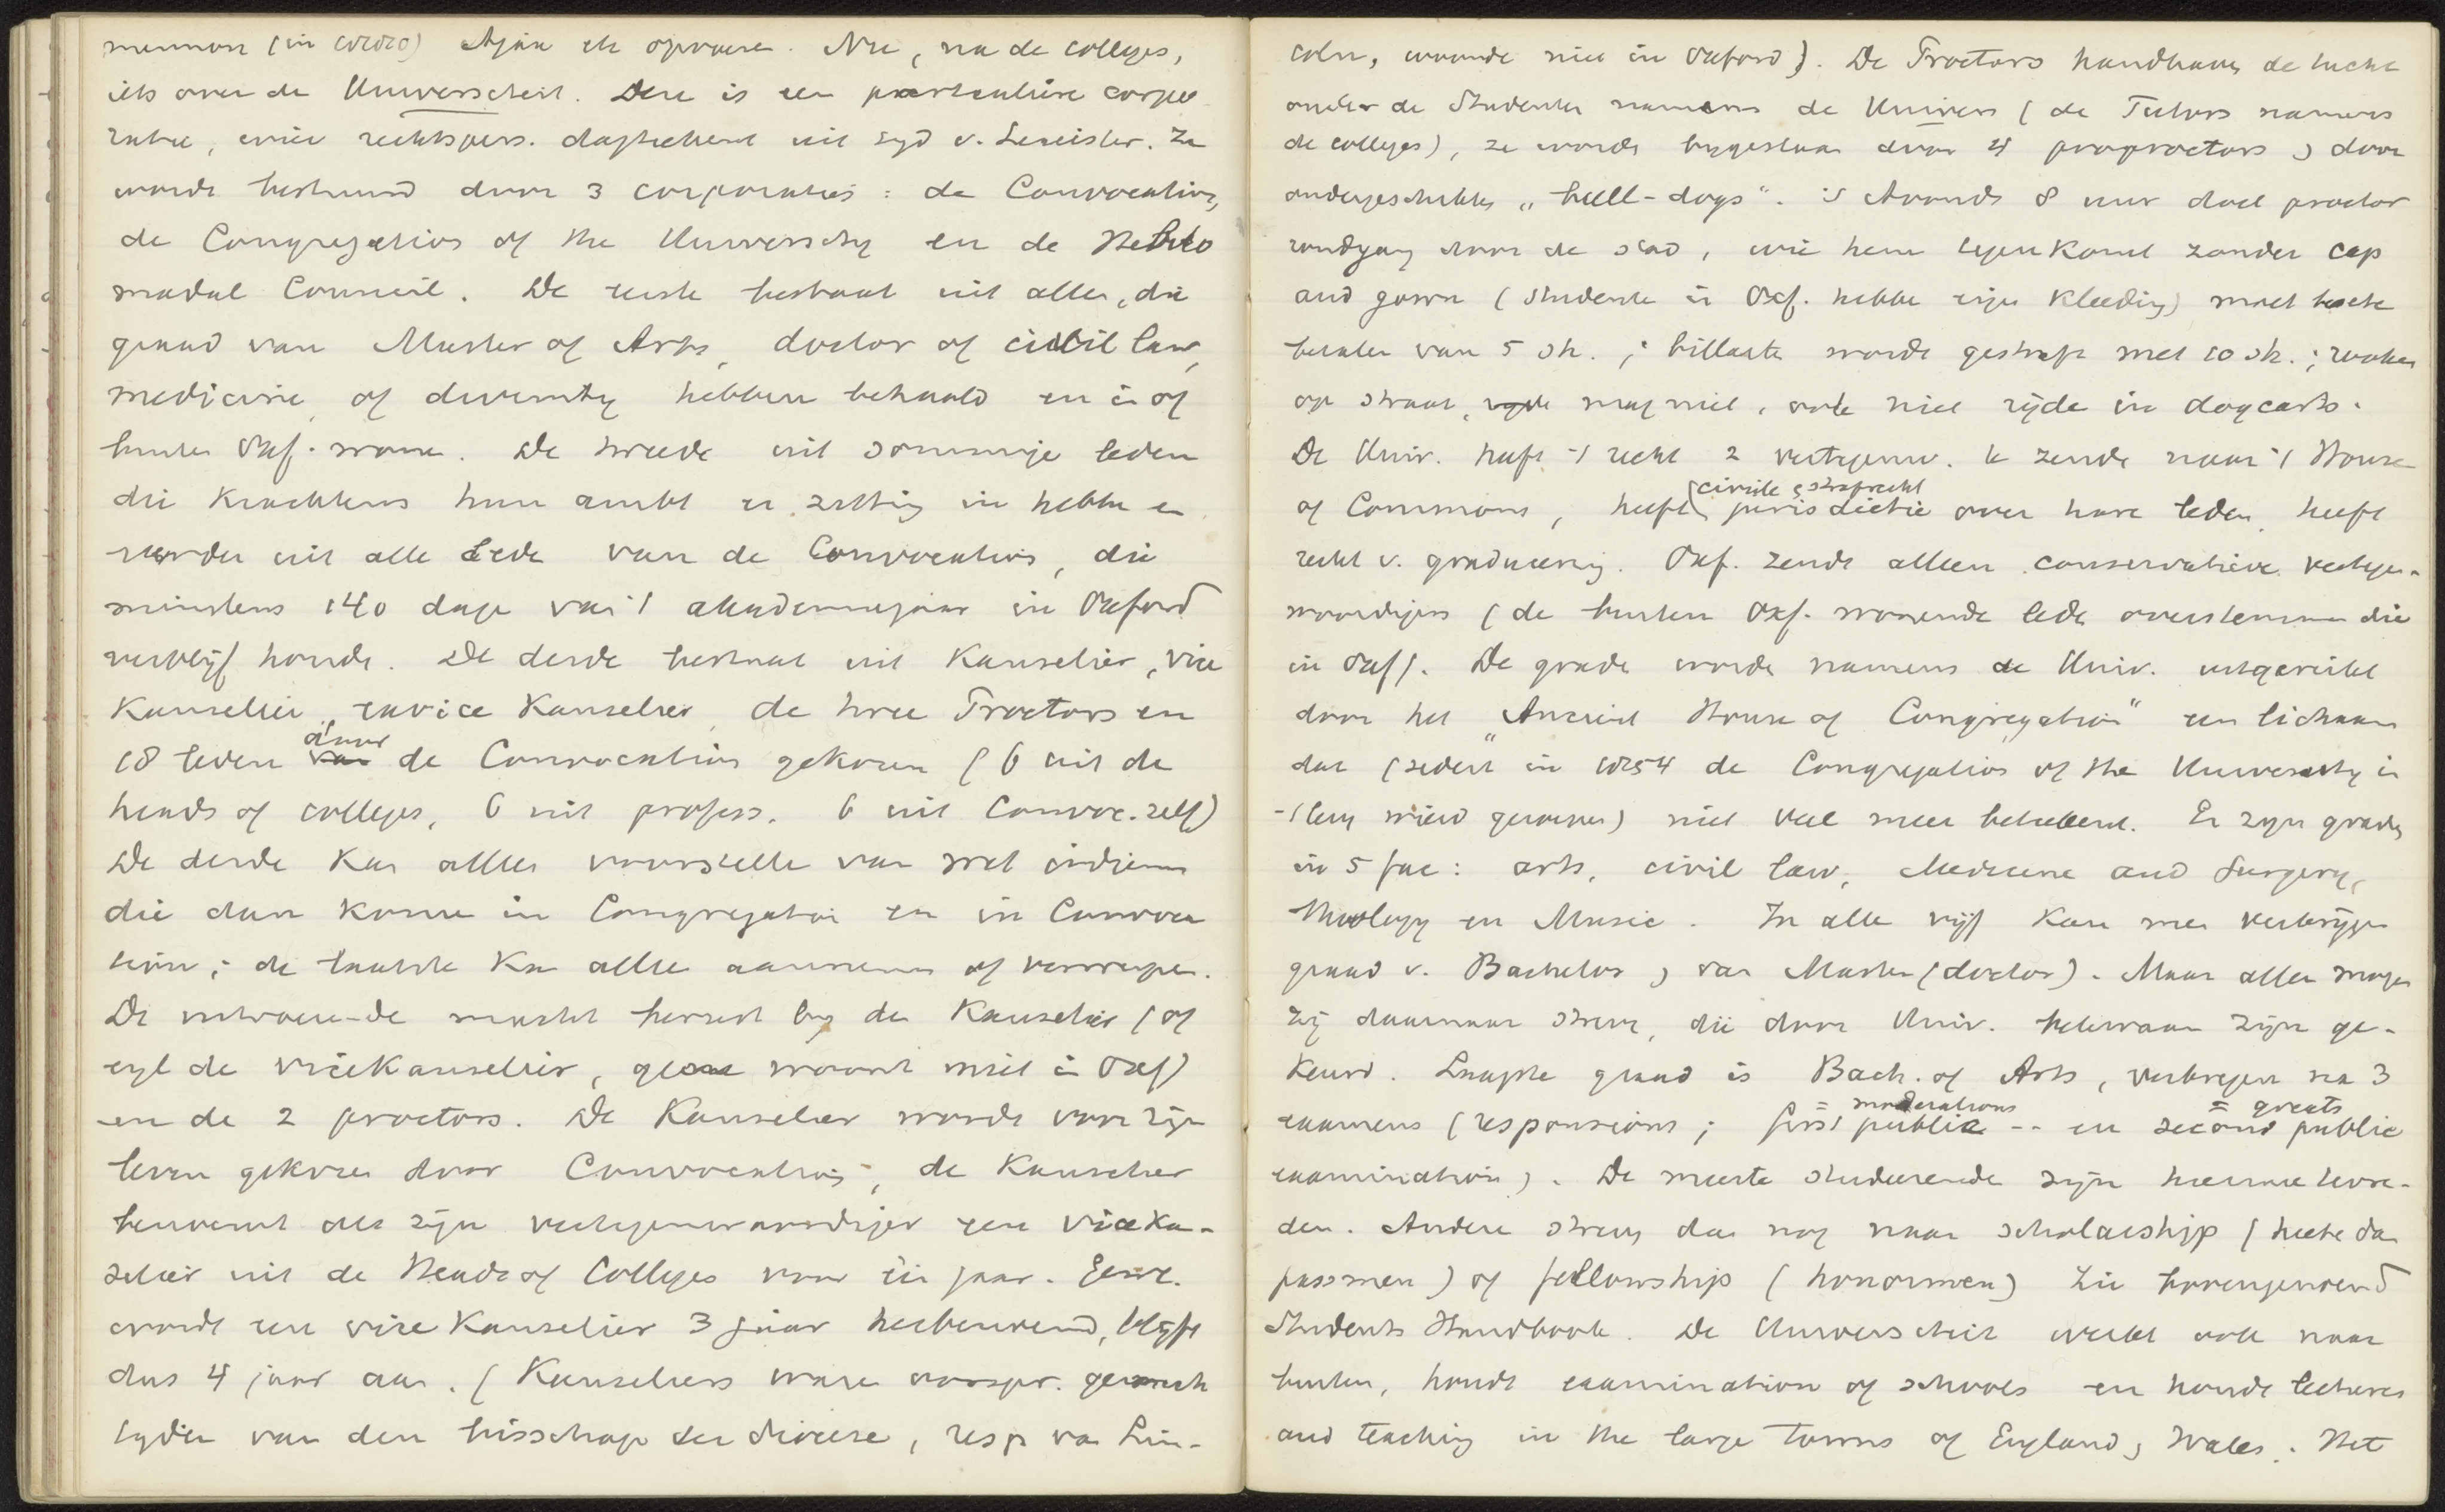 (in 1820) Nu, na de colleges,
iets over de Universiteit. Deze is een particuliere corpo
ratie, rechtspers. dagteekent uit tyd v. Leicister. Ze
wordt bestuurd door 3 corporaties: de Convocation,
de Congregation of the University en de Hebdo
madal Council. De eerste bestaat uit allen, die
graad van Master of Arts, doctor of civil law,
medicine of divinity hebben behaald en in of
buiten Oxf. wonen. De tweede uit sommige leden
die krachtens hun ambt er zitting in hebben en
verder uit alle leden van de Convocation, die
minstens 140 dage van 't akademiejaar in Oxford
verblijf houde. De derde bestaat uit Kanselier, vice
Kanselier, exvice Kanselier, de twee Proctors en
18 leden door de Convocation gekozen (6 uit de
heads of colleges, 6 uit profess. 6 uit Convoc. zelf)
De derde kan alleen voorstellen van wet indienen
die dan komen in Congregation en in Convoca
tion; de laatste kan alles aannemen of verwerpen.
De uitvoerende macht berust by den Kanselier (of
eigl de vicekanselier, gene woont niet in Oxf)
en de 2 proctors. De Kanselier wordt voor zijn
leven gekozen door Convocation; de Kanselier
benoemt als zijn vertegenwoordiger een viceka-
selier uit de Heads of Colleges voor één jaar. Gew.
wordt een vice Kanselier 3 jaar herbenoemd, blijft
dus 4 jaar aan. (Kanseliers ware oorspr.
van den bisschop der diocese, resp van Lin-
coln, woonde niet in Oxford). De Proctors handhaven de tucht
onder de Studenten namens de Univers (de Tutors namens
de colleges), ze worden bygestaan door 4 proproctors en door
ondergeschikten „bull-dogs". 's Avonds 8 uur doet proctor
rondgang door de stad, wie hem tegenkomt zonder cap
and gown (studenten in Oxf. hebbe eigen kleeding) moet boete
betalen van 5 sh.; billarten wordt gestraft met 10 sh.; rooken
op straat mag niet, ook niet rijden in dogcarts.
De Univ. heeft 't recht 2 vertegenw. te zenden naar 't House
of Commons, heeft civiele en strafrecht jurisdictie over hare leden, heeft
recht v. graduering. Oxf. zendt alleen conservatieve vertegen-
woordigers (de buiten Oxf. wonende leden overstemmen die
in Oxf). De graden worden namens de Univ. uitgereikt
door het „Ancient House of Congregation" een lichaam
dat (sedert in 1854 de Congregation of the University in
't leven wierd geroepen) niet veel meer beteekent. Er zijn graden
in 5 fac: arts, civil law, Medicine and Surgery,
Theology en Music. In alle vijf kan men verkrijgen
graad v. Bachelor en van Master (doctor). Maar alleen mogen
zij daarnaar streven, die door Univ. bekwaam zijn ge-
keurd. Laagste graad is Bach. of Arts, verkregen na 3
examens (responsions; first public = moderations -- en second public = greats
examination). De meeste studeerende zijn hiermee tevre-
den. Andere streven dan nog naar scholarship (heete dan
passmen) of fellowship (honormen) Zie bovengenoemd
Students Handbook. De Universiteit werkt ook naar
buiten, houdt examination of schools en houdt lectures
and teaching in the large towns of England en Wales. Het